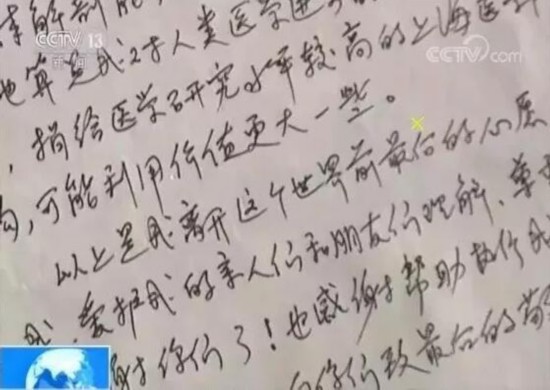 CCTV 13
新闻
CCTV.com
体解剖
也算完成对人类医学进
，捐给医学研究水平较高的上海医科
，可能利用价值更大一些。
以上是我离开这个世界前最后的心愿
我、爱护我的亲人们和朋友们理解、尊重
谢你们了！也感谢帮助执行我
向你们致最后的